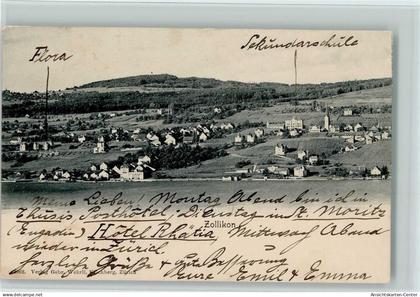 Flora
Sekundarschule
Meine Lieben! Montag Abend bin ich in
Thusis Posthôtel, Dienstag in St. Moritz
Zollikon
(Engadin) Hôtel Rhätia, Mittwoch Abend
wieder in Zürich
Herzliche Grüße & gute
Eure Emil & Emma
Verlag Gebr. Wehrli, Kilchberg, Zürich